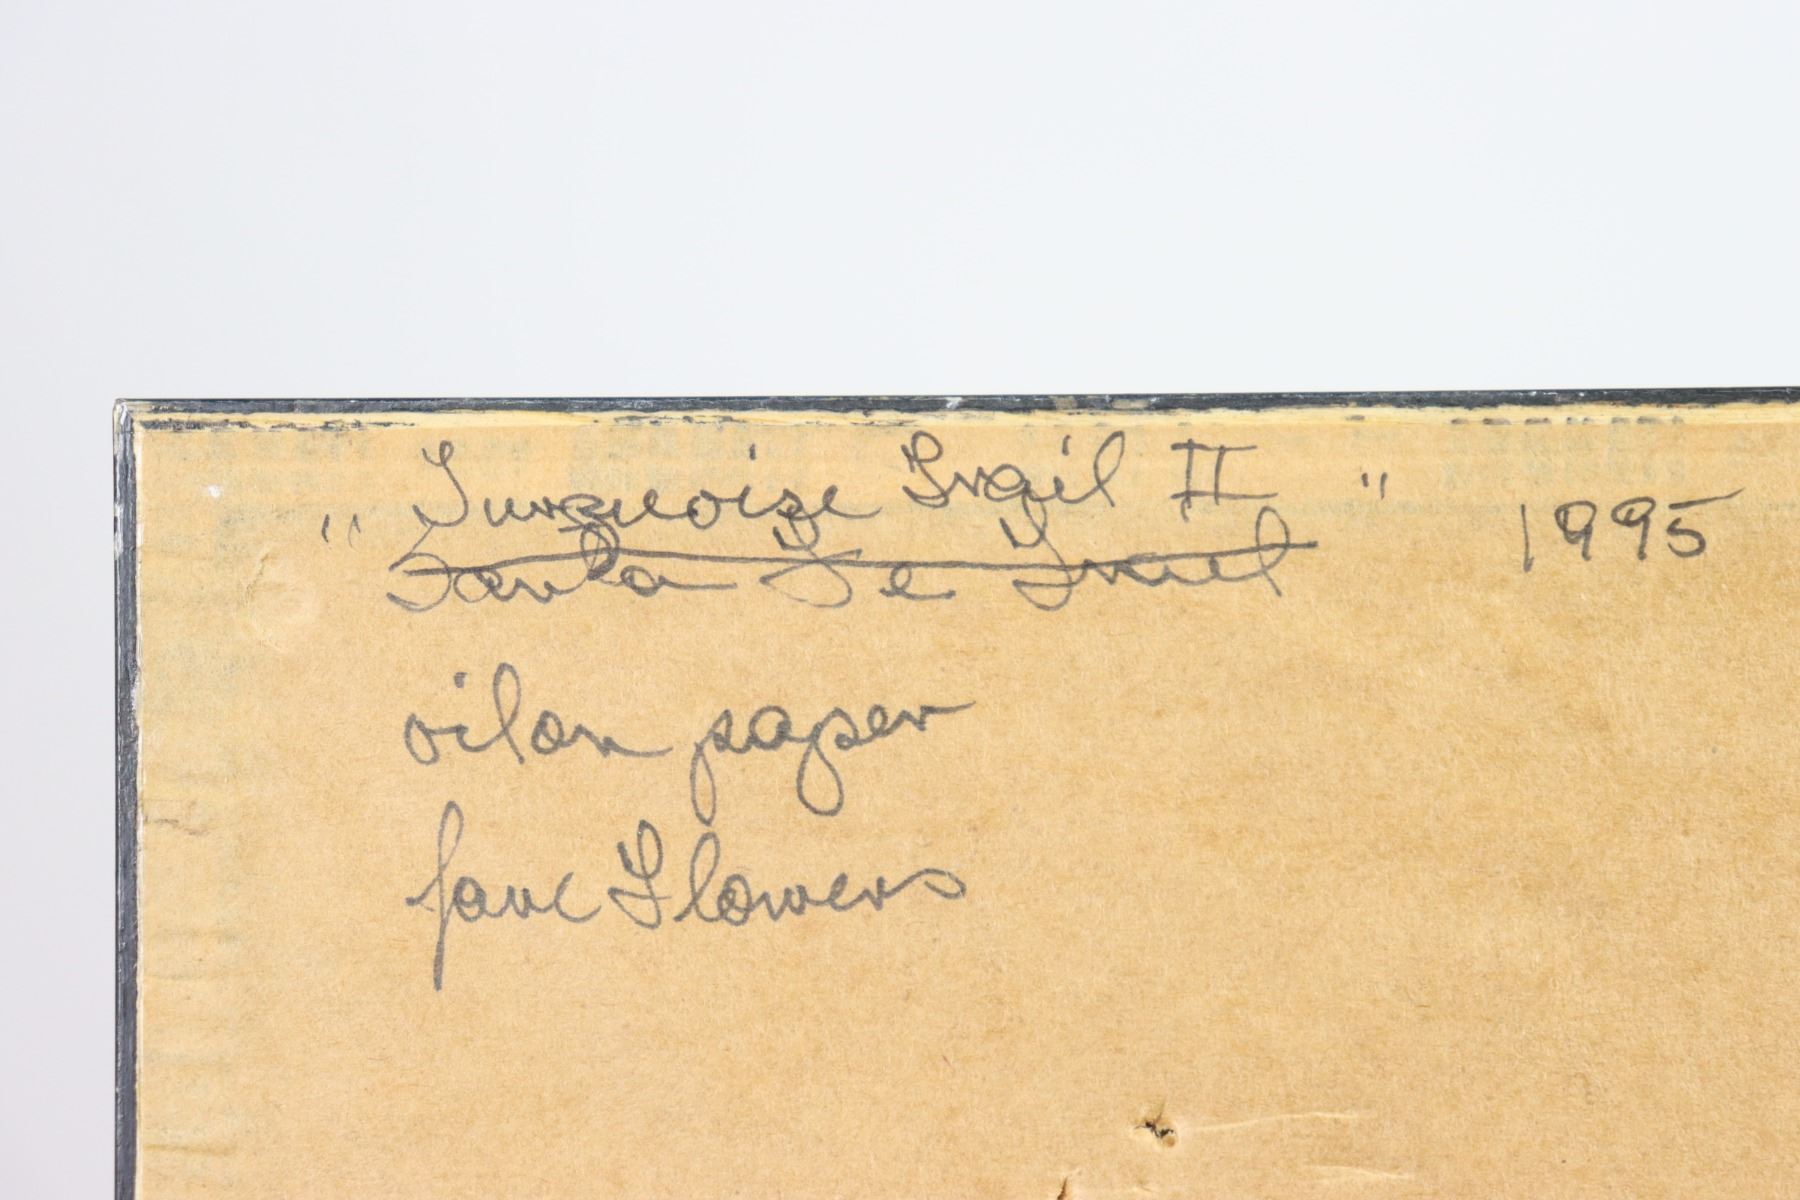 " Turquoise Trail II " 1995
Santa Fe Trail
oil on paper
Jane Flowers